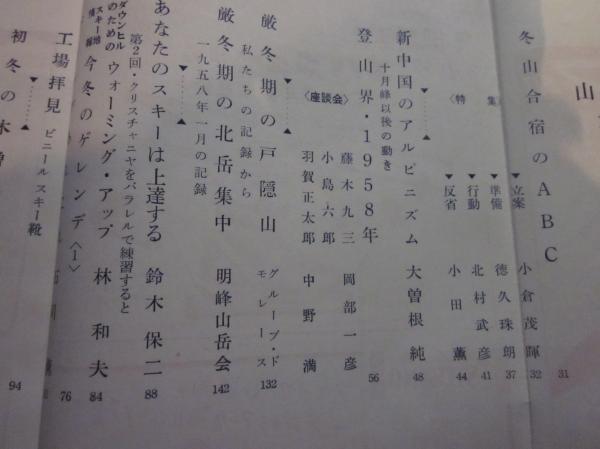 山
31
冬山合宿のABC
〈特集〉
立案 小倉茂暉 32
準備 徳久珠朗 37
行動 北村武彦 41
反省 小田薫 44
新中国のアルピニズム 大曽根純 48
十月峰以後の動き
登山界・1958年 56
〈座談会〉
藤木九三 岡部一彦
小島六郎
羽賀正太郎 中野満
厳冬期の戸隠山 グループ・ド・モレーヌ 132
私たちの記録から
厳冬期の北岳集中 明峰山岳会 142
一九五八年一月の記録
あなたのスキーは上達する 鈴木保二 88
第2回・クリスチャニヤをパラレルで練習すると
ダウンヒルスキーのための ウォーミング・アップ 林和夫 84
今冬のゲレンデ〈1〉 76
工場拝見 ビニールスキー靴
初冬の木曽 94